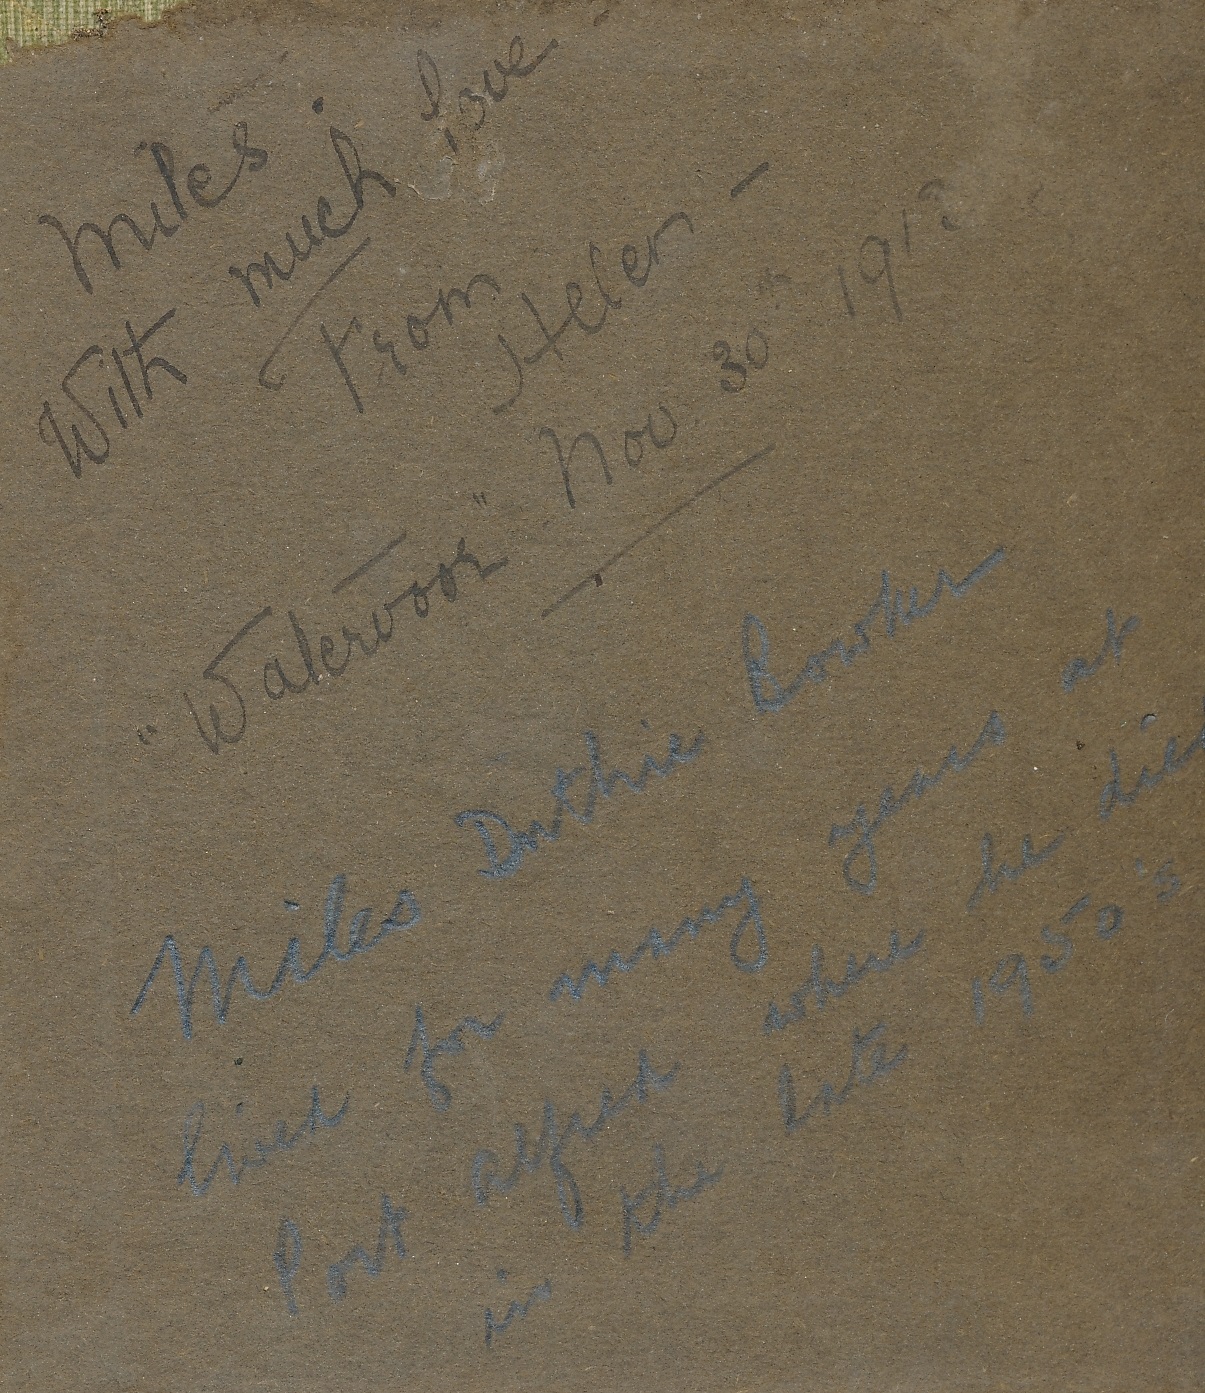 Miles
With much love
From
Helen —
"Watervoor" Nov. 30th 191
Miles Duthie Bowker
lived for many years at
Port Alfred where he died
in the late 1950's